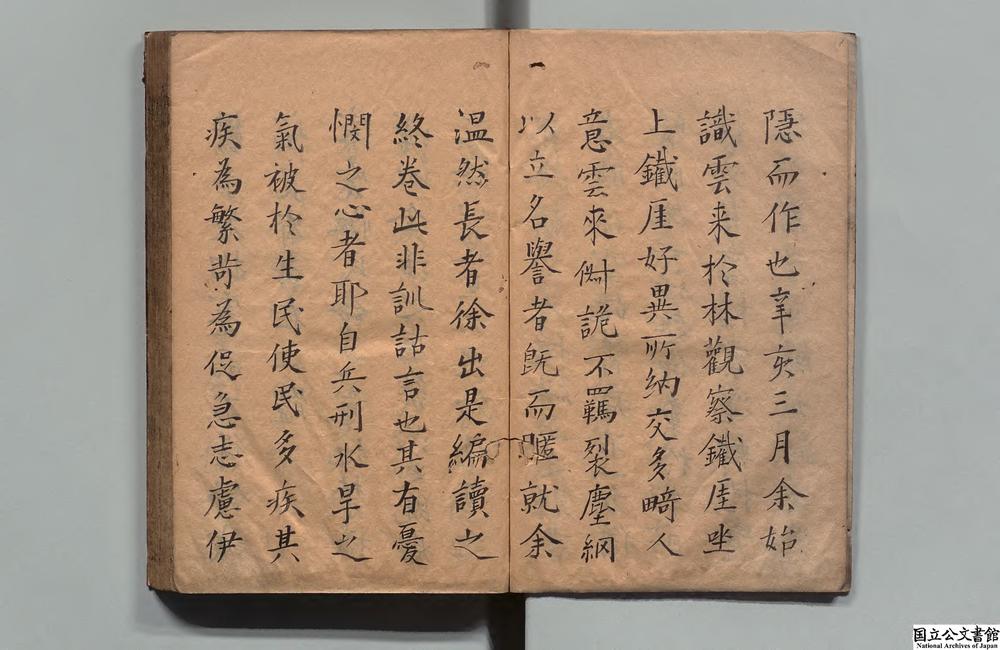 隠而作也辛亥三月余始
識雲来於林觀察鐵厓坐
上鐵厓好異所納交多畸人
意雲來俶詭不羈裂塵網
以立名譽者既而暱就余
温然長者徐出是編讀之
終卷此非訓詁言也其有憂
憫之心者耶自兵刑水旱之
氣被於生民使民多疾其
疾為繁苛為促急志慮伊
国立公文書館
National Archives of Japan